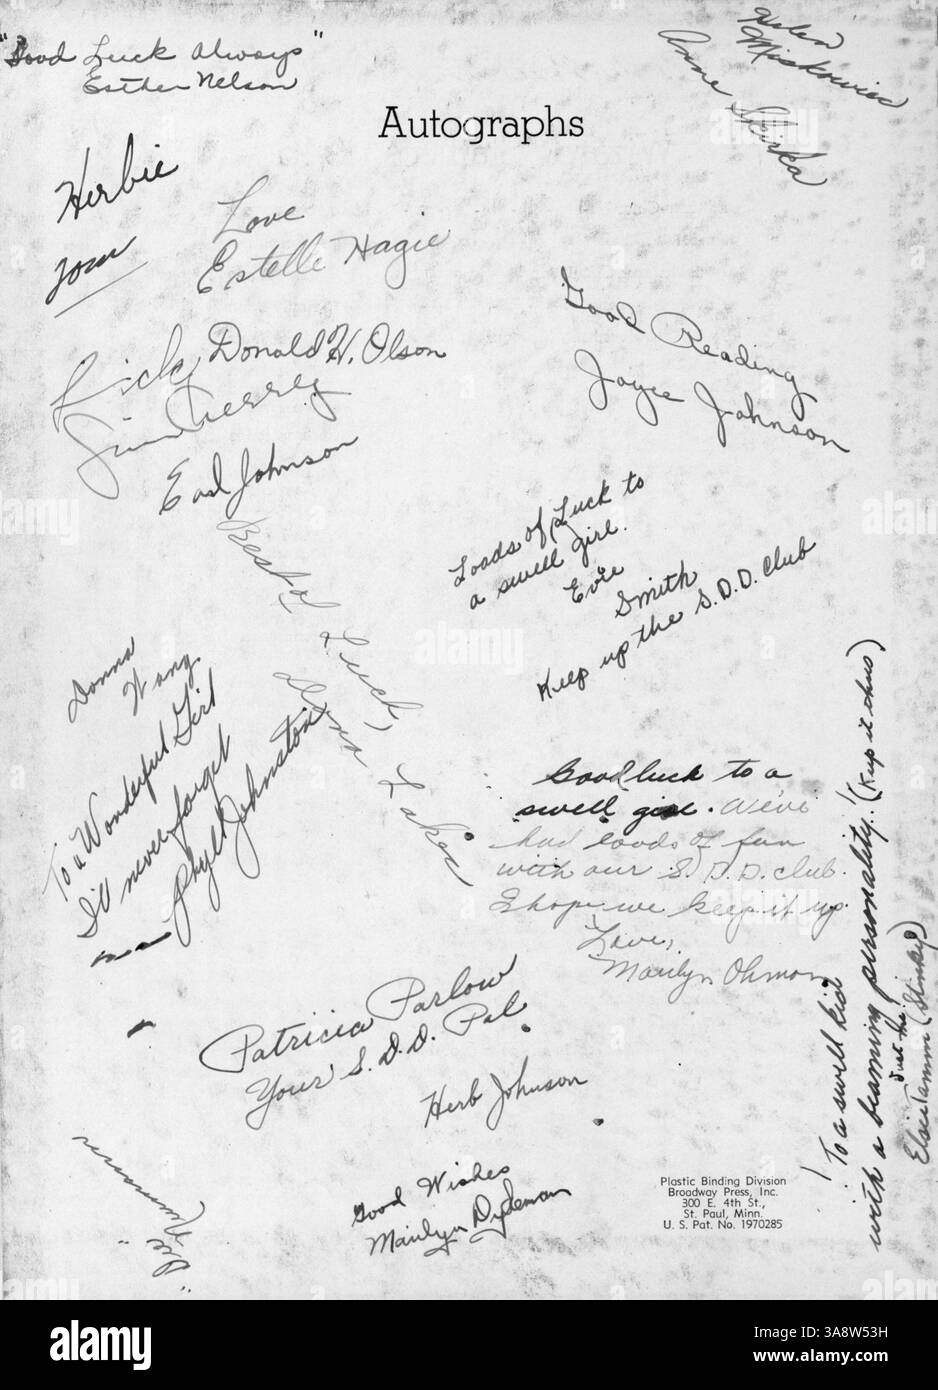 "Good Luck Always"
Esther Nelson
Helen
Miskowiec
Anne Skirka
Autographs
Herbie
Love
Estelle Hagie
Dick Donald H. Olson
Jim
Earl Johnson
Good Reading
Joyce Johnson
Best of Luck,
Donna Laker
Loads of Luck to
a swell girl.
Evie
Smith
Keep up the S.D.D. Club
Donna
Wang
To a Wonderful Girl
I'll never forget
Phyll Johnston
Good luck to a
swell girl. We've
had loads of fun
with our S.D.D. club.
I hope we keep it up.
Love,
Marilyn Ohman
Patricia Parlow
Your S.D.D. Pal
Herb Johnson
Good Wishes
Marilyn Dydeman
! To a swell kid !
with a beaming personality. (Keep it ohns)
Just the
Elsie Tamm (Stinky)
Plastic Binding Division
Broadway Press, Inc.
300 E. 4th St.,
St. Paul, Minn.
U. S. Pat. No. 1970285
alamy
Image ID: 3A8W53H
www.alamy.com